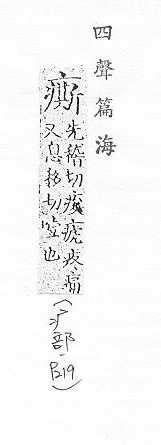 四聲篇海
𤺊 先稽切痠㾷疼痛
又息移切噓也
(疒部·P.19)